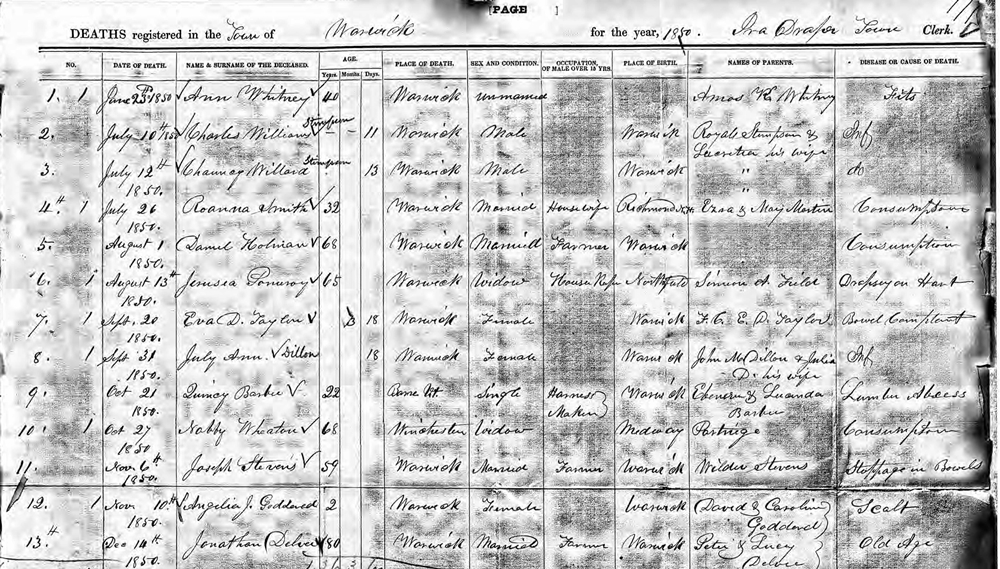 [PAGE ]
DEATHS registered in the Town of Warwick for the year, 1850. Ira Draper Town Clerk.
NO. DATE OF DEATH. NAME & SURNAME OF THE DECEASED. AGE. PLACE OF DEATH. SEX AND CONDITION. OCCUPATION, OF MALE OVER 15 YRS. PLACE OF BIRTH. NAMES OF PARENTS. DISEASE OR CAUSE OF DEATH.
Years. Months. Days.
1. 1 June 25th 1850 Ann Whitney 40 Warwick unmarried Amos Whitney Fits
Stimpson
2. July 10th Charles William 11 Warwick Male Warwick Royal Stimpson & Inf
Lucretia his wife
Stimpson
3. July 12th Chauncy Willard 13 Warwick Male Warwick " do
1850. "
4th 1 July 26 Roanna Smith 32 Warwick Married Housewife Richmond N.H. Ezra & May Martin Consumption
1850.
5. August 1 Daniel Holman 68 Warwick Married Farmer Warwick Consumption
1850.
6. 1 August 13th Jerusia Pomroy 65 Warwick Widow Northfield Field Dropsy on Hart
1850.
7. 1 Sept. 20 Eva D. Taylor 3 18 Warwick Female Warwick F. C. E. D. Taylor Bowel Complant
1850.
8. 1 Sept 31 July Ann. Dillon 18 Warwick Female Warwick John M Dillon & Julia Inf
1850. D. his wife
9. 1 Oct 21 Quincy Barber 22 Barre Vt. Single Harness Warwick Ebenezer & Luanda Lumber Abcess
1850. Maker Barber
10. 1 Oct 27 Nabby Wheaton 68 Winchester Widow Midway Partrige Consumption
1850
11. Nov. 6th Joseph Stevens 59 Warwick Married Farmer Warwick Wilder Stevens Stoppage in Bowels
1850.
12. 1 Nov 10th Angelia J. Goddard 2 Warwick Female Warwick (David & Caroline Scalt
1850. Goddard)
13.th Dec 14th Jonathan Delvee 80 Warwick Married Farmer Warwick Peter & Lucy Old Age
1850. Delvee